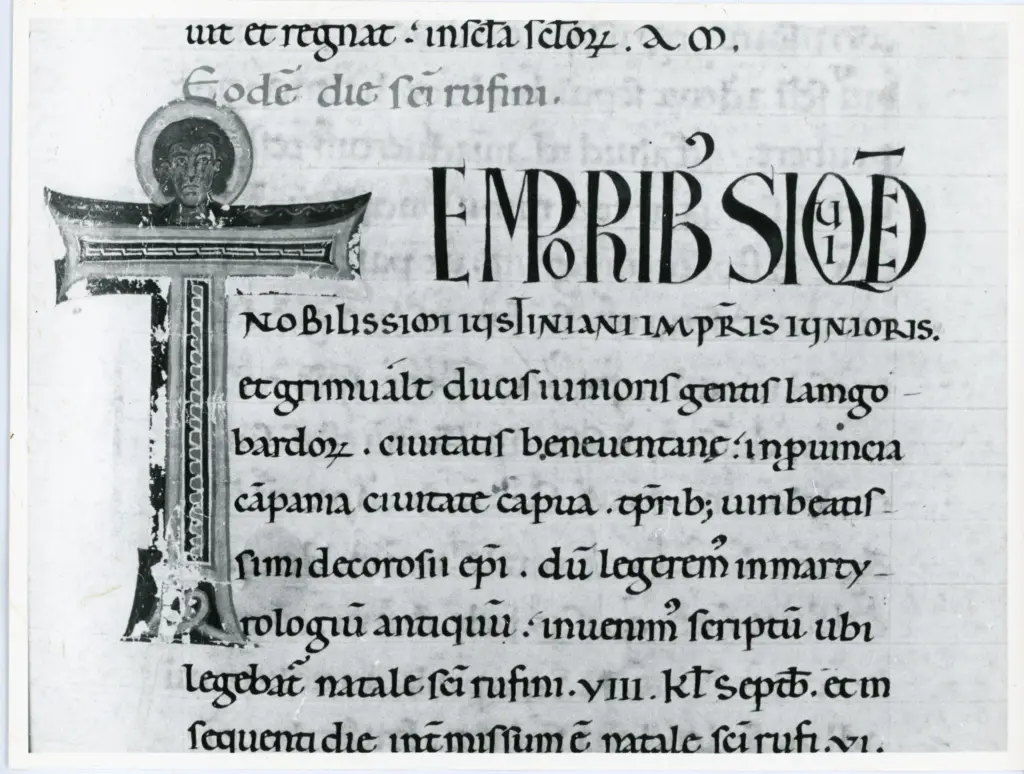 uit et regnat. in scła scłoꝝ. A M.
Eodē die sci rufini.
TEMPORIB᾽ SIQUIDĒ
NOBILISSIMI IUSTINIANI IMPRIS IUNIORIS.
et grimuált ducis iunioris gentis lango
bardoꝝ. ciuitatis beneuentanę. in ꝓuincia
cāpania ciuitate capua. tp̄rib; uiri beatis
simi decorosii ep̄i. dū legerem᾽ in marty
rologiū antiquū. inuenim᾽ scriptū ubi
legebat̄ natale sc̄i rufini. VIII. kł septb̄. et in
sequenti die int̄missum ē natale sc̄i rufi. VI.